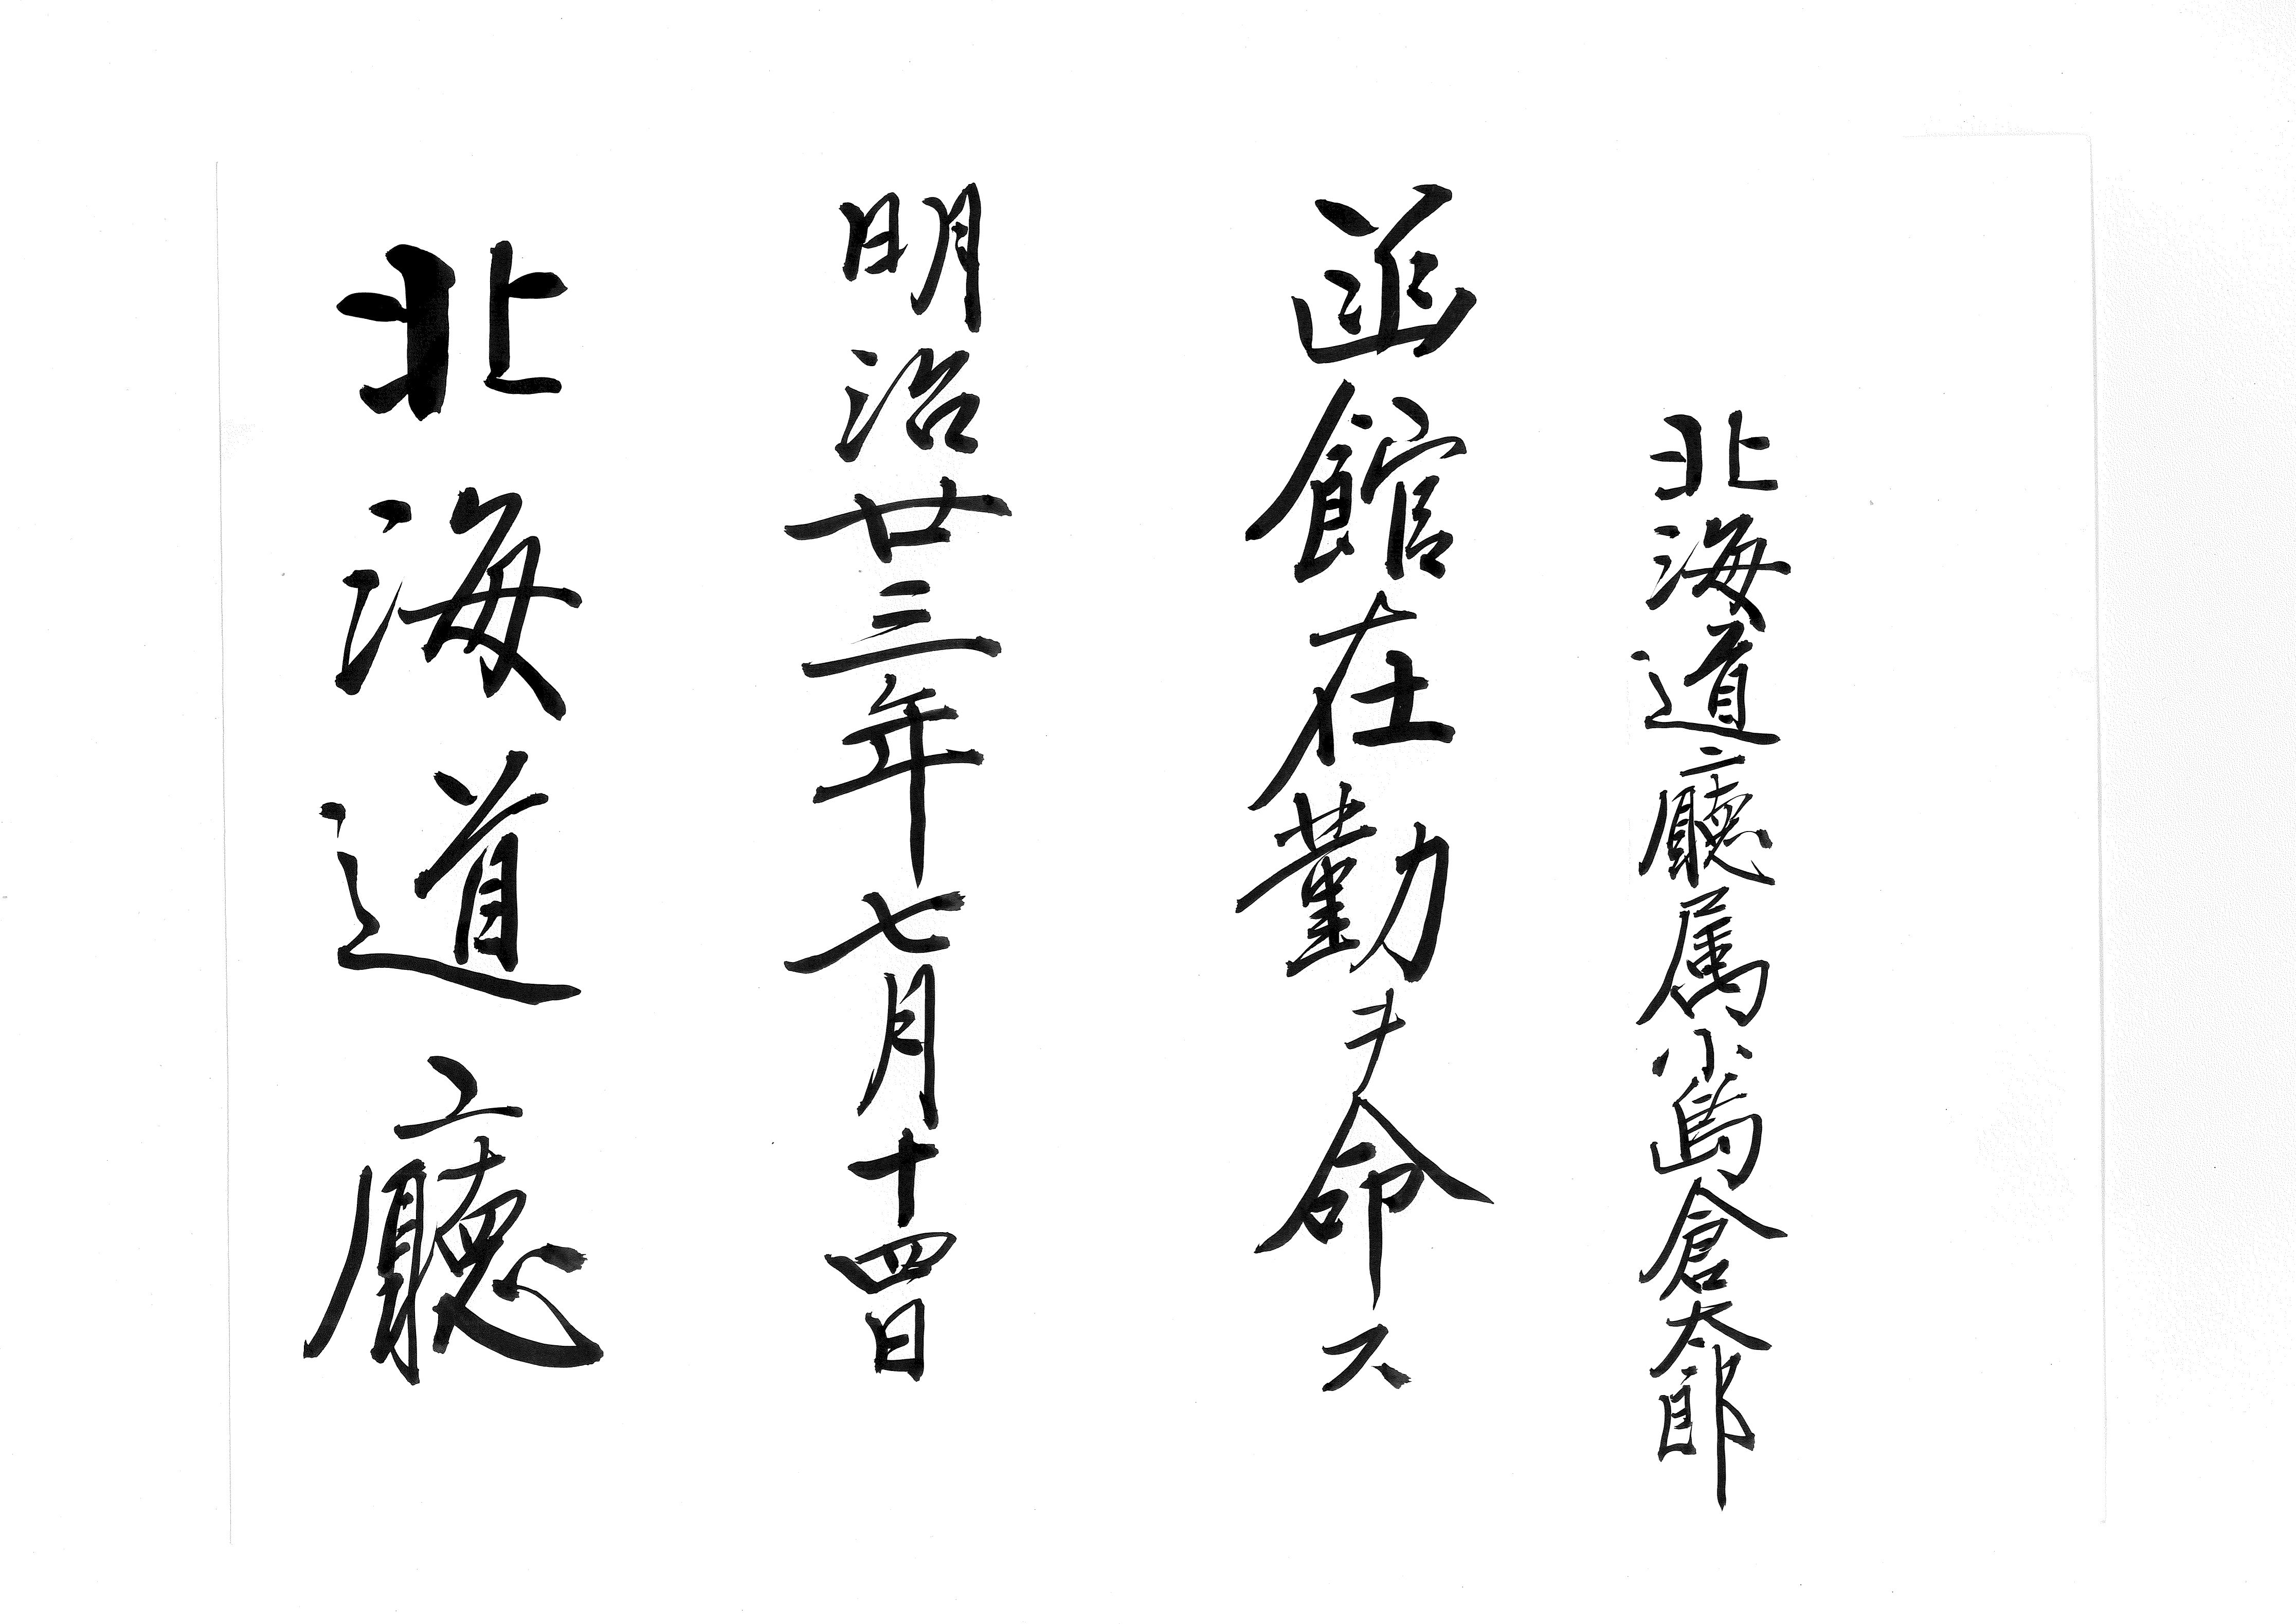 北海道廳属小島倉太郎
函館在勤ヲ命ス
明治廿三年七月十四日
北海道廳